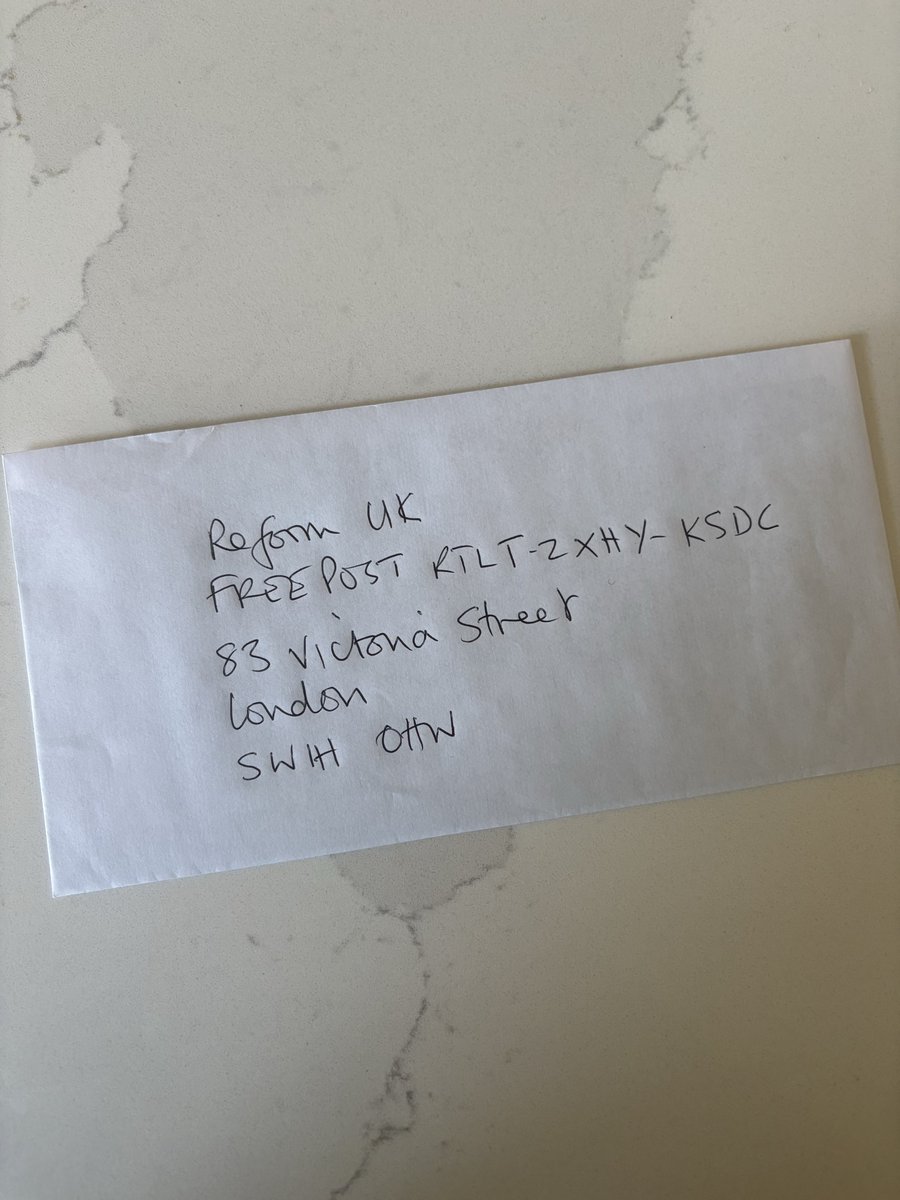 Reform UK
FREEPOST RTLT-ZXHY-KSDC
83 Victoria Street
London
SW1H 0HW